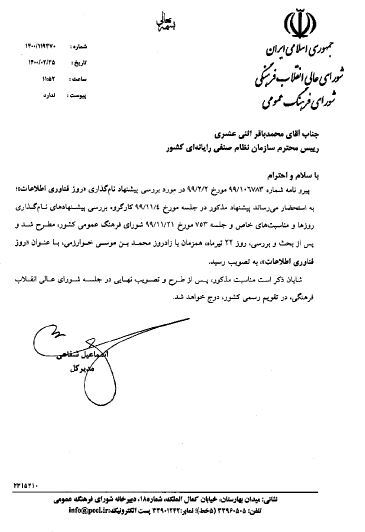 بسمه تعالی
جمهوری اسلامی ایران
شورای عالی انقلاب فرهنگی
شورای فرهنگ عمومی
شماره : ۱۴۰۰/۱۱۹۴۷۰
تاریخ : ۱۴۰۰/۰۲/۲۵
ساعت : ۱۱:۵۲
پیوست : ندارد
جناب آقای محمدباقر اثنی عشری
رییس محترم سازمان نظام صنفی رایانه‌ای کشور
با سلام و احترام
پیرو نامه شماره ۹۹/۱۰۶۷۸۳ مورخ ۹۹/۲/۲ در مورد بررسی پیشنهاد نام‌گذاری «روز فناوری اطلاعات»؛
به استحضار می‌رساند پیشنهاد مذکور در جلسه مورخ ۹۹/۱۱/۴ کارگروه بررسی پیشنهادهای نام‌گذاری
روزها و مناسبت‌های خاص و جلسه ۷۵۳ مورخ ۹۹/۱۱/۲۱ شورای فرهنگ عمومی کشور، مطرح شد و
پس از بحث و بررسی، روز ۲۲ تیرماه، همزمان با زادروز محمد بن موسی خوارزمی، با عنوان «روز
فناوری اطلاعات»، به تصویب رسید.
شایان ذکر است مناسبت مذکور، پس از طرح و تصویب نهایی در جلسه شورای عالی انقلاب
فرهنگی، در تقویم رسمی کشور، درج خواهد شد.
اسماعیل شفاعی
مدیرکل
۲۲۱۵۲۱۰
نشانی: میدان بهارستان، خیابان کمال الملک، شماره۱۸، دبیرخانه شورای فرهنگ عمومی
تلفن: ۳۳۹۶۰۵۰۵ (۵خط)؛ نمابر: ۳۳۹۰۱۲۴۲ پست الکترونیک: info@pccl.ir